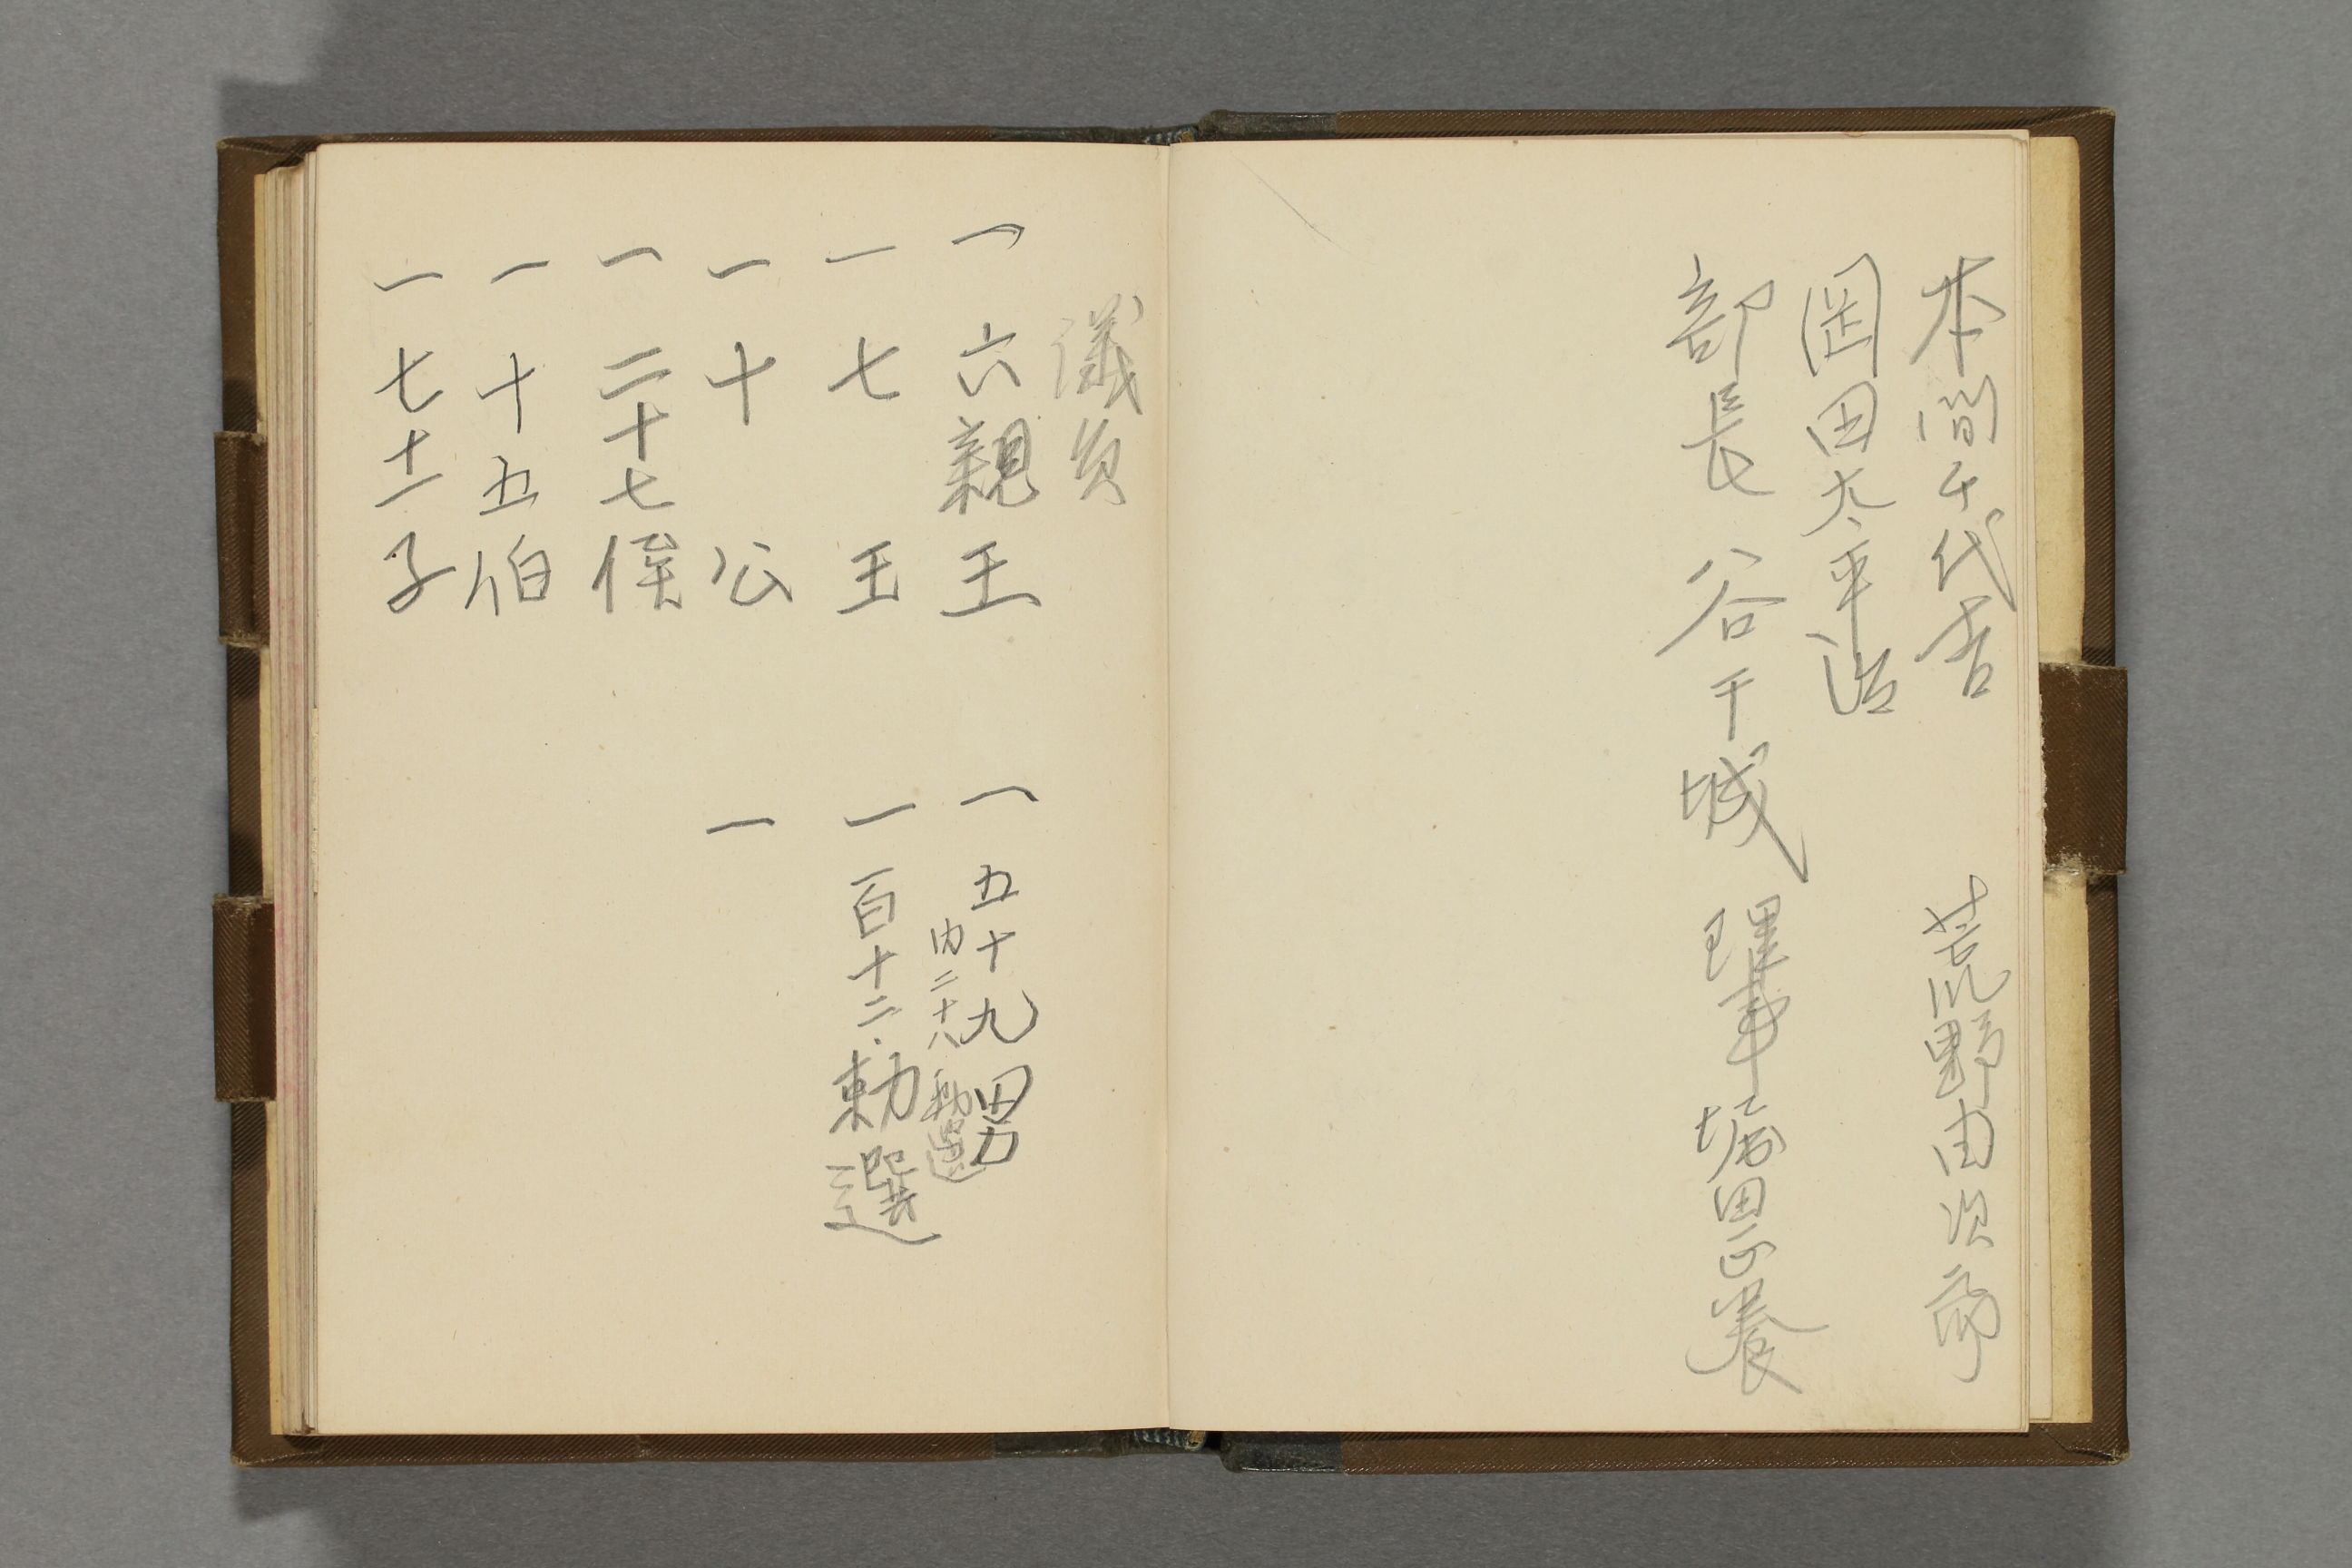 本間千代吉
荒野由次郎
岡田太平治
部長 谷干城 理事 堀田正養
議員
一 六親王
一 七 王
一 十 公
一 二十七侯
一 十五伯
一 七十一子
一 五十九男
内二十八勅選
一 百十二勅選
一